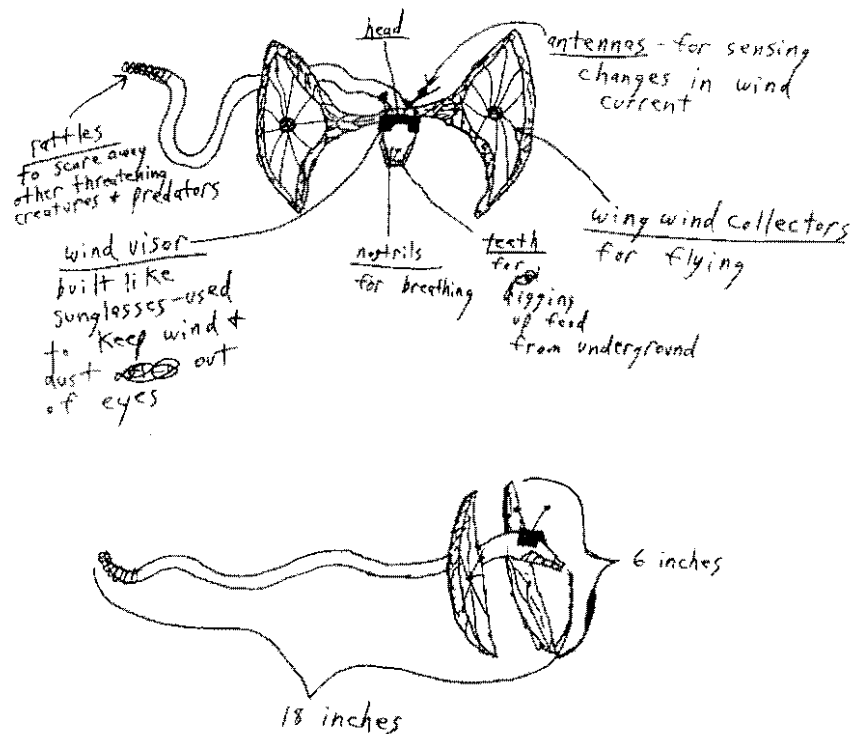 head
antennas - for sensing
changes in wind
current
rattles
to scare away
other threatening
creatures + predators
wind visor
built like
sunglasses - used
to keep wind +
dust out
of eyes
nostrils
for breathing
teeth
for
digging
up food
from underground
wing wind collectors
for flying
6 inches
18 inches